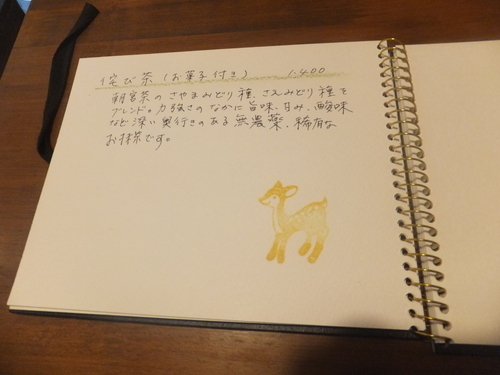 侘び茶(お菓子付き) 1.400
朝宮茶のさやまみどり種、さえみどり種を
ブレンド。力強さのなかに旨味、甘み、酸味
など深い奥行きのある無農薬、稀有な
お抹茶です。